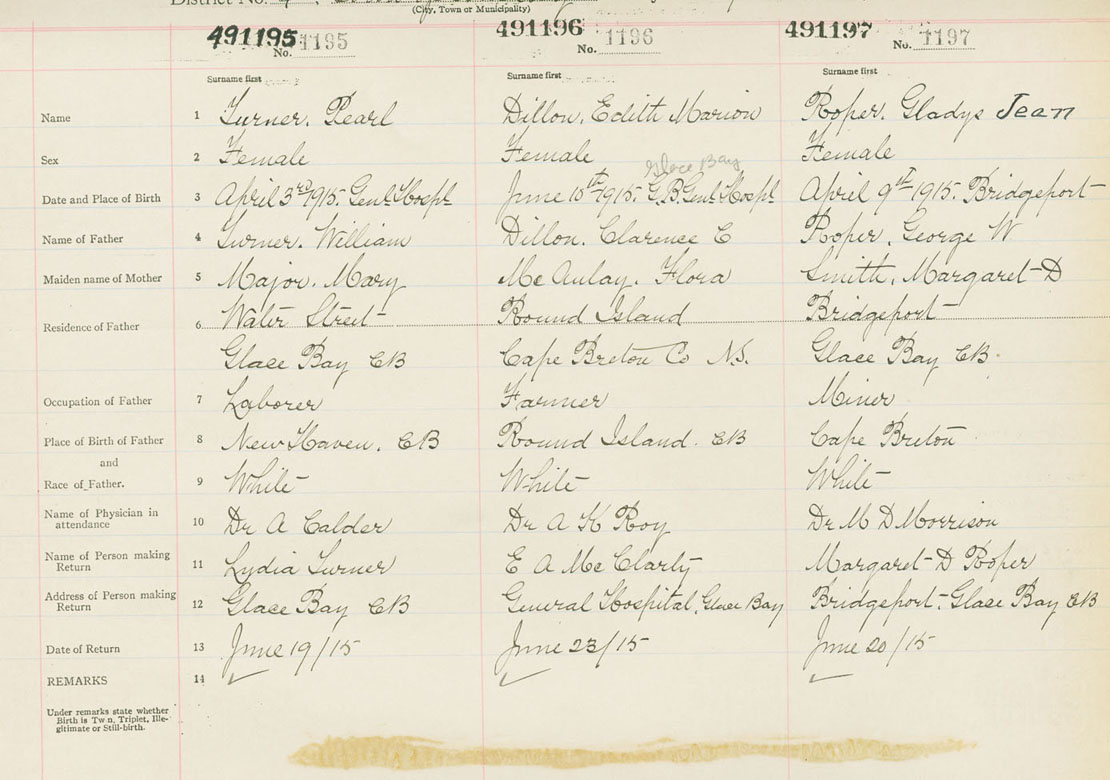 District No.
(City, Town or Municipality)
491195 No. 1195 491196 No. 1196 491197 No. 1197
Surname first Surname first Surname first
Name 1 Turner, Pearl Dillon, Edith Marion Roper, Gladys Jean
Sex 2 Female Female Female
Glace Bay
Date and Place of Birth 3 April 3rd 1915. Genl Hospl June 15th 1915. G.B. Genl Hospl April 9th 1915. Bridgeport
Name of Father 4 Turner. William Dillon. Clarence C Roper. George W
Maiden name of Mother 5 Major. Mary McAulay. Flora Smith. Margaret D
Residence of Father 6 Water Street Round Island Bridgeport
Glace Bay CB Cape Breton Co N.S. Glace Bay CB.
Occupation of Father 7 Laborer Farmer Miner
Place of Birth of Father 8 New Haven. CB Round Island. CB Cape Breton
and
Race of Father. 9 White White White
Name of Physician in
attendance 10 Dr A Calder Dr A K Roy Dr M D Morrison
Name of Person making
Return 11 Lydia Turner E A McClarty Margaret D Roper
Address of Person making
Return 12 Glace Bay CB General Hospital, Glace Bay Bridgeport, Glace Bay CB
Date of Return 13 June 19/15 June 23/15 June 20/15
REMARKS 14
Under remarks state whether
Birth is Twin, Triplet, Ille-
gitimate or Still-birth.